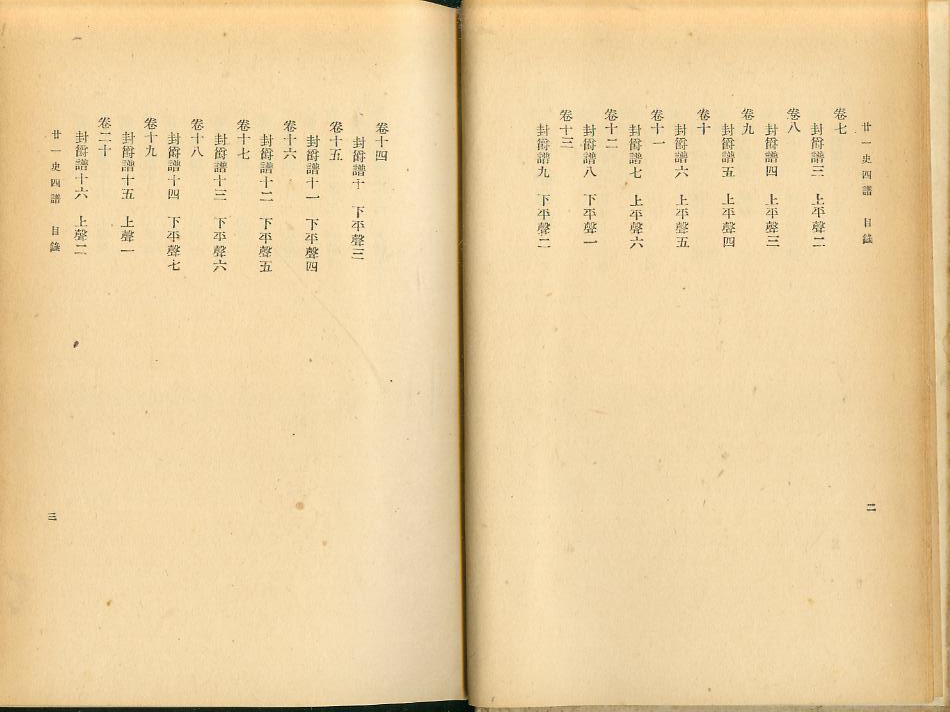 廿一史四譜　目錄
卷七
封爵譜三　上平聲二
卷八
封爵譜四　上平聲三
卷九
封爵譜五　上平聲四
卷十
封爵譜六　上平聲五
卷十一
封爵譜七　上平聲六
卷十二
封爵譜八　下平聲一
卷十三
封爵譜九　下平聲二
二
卷十四
封爵譜十　下平聲三
卷十五
封爵譜十一　下平聲四
卷十六
封爵譜十二　下平聲五
卷十七
封爵譜十三　下平聲六
卷十八
封爵譜十四　下平聲七
卷十九
封爵譜十五　上聲一
卷二十
封爵譜十六　上聲二
廿一史四譜　目錄
三